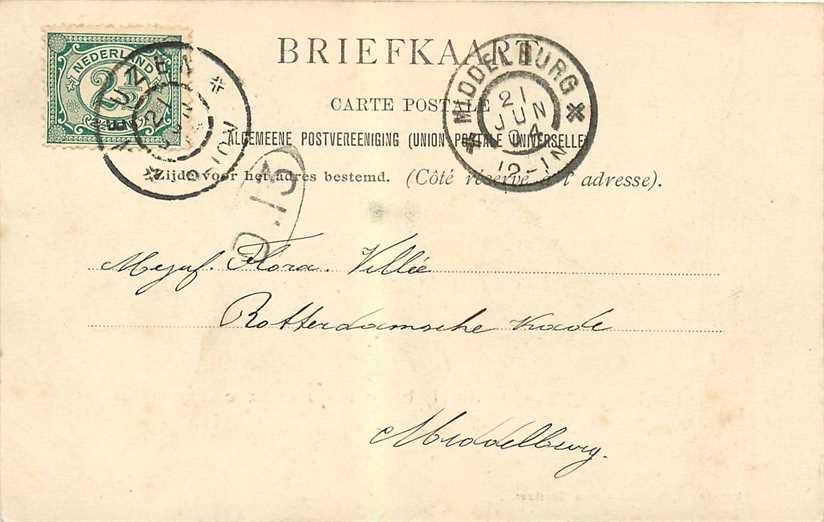 BRIEFKAART
CARTE POSTALE
ALGEMEENE POSTVEREENIGING (UNION POSTALE UNIVERSELLE)
Zijde voor het adres bestemd. (Côté réservé à l'adresse).
NEDERLAND
2½
21
MIDDELBURG
21
JUN
04
12-1N
0.15
Mejuf. Flora. Villée
Rotterdamsche Kade
Middelburg.